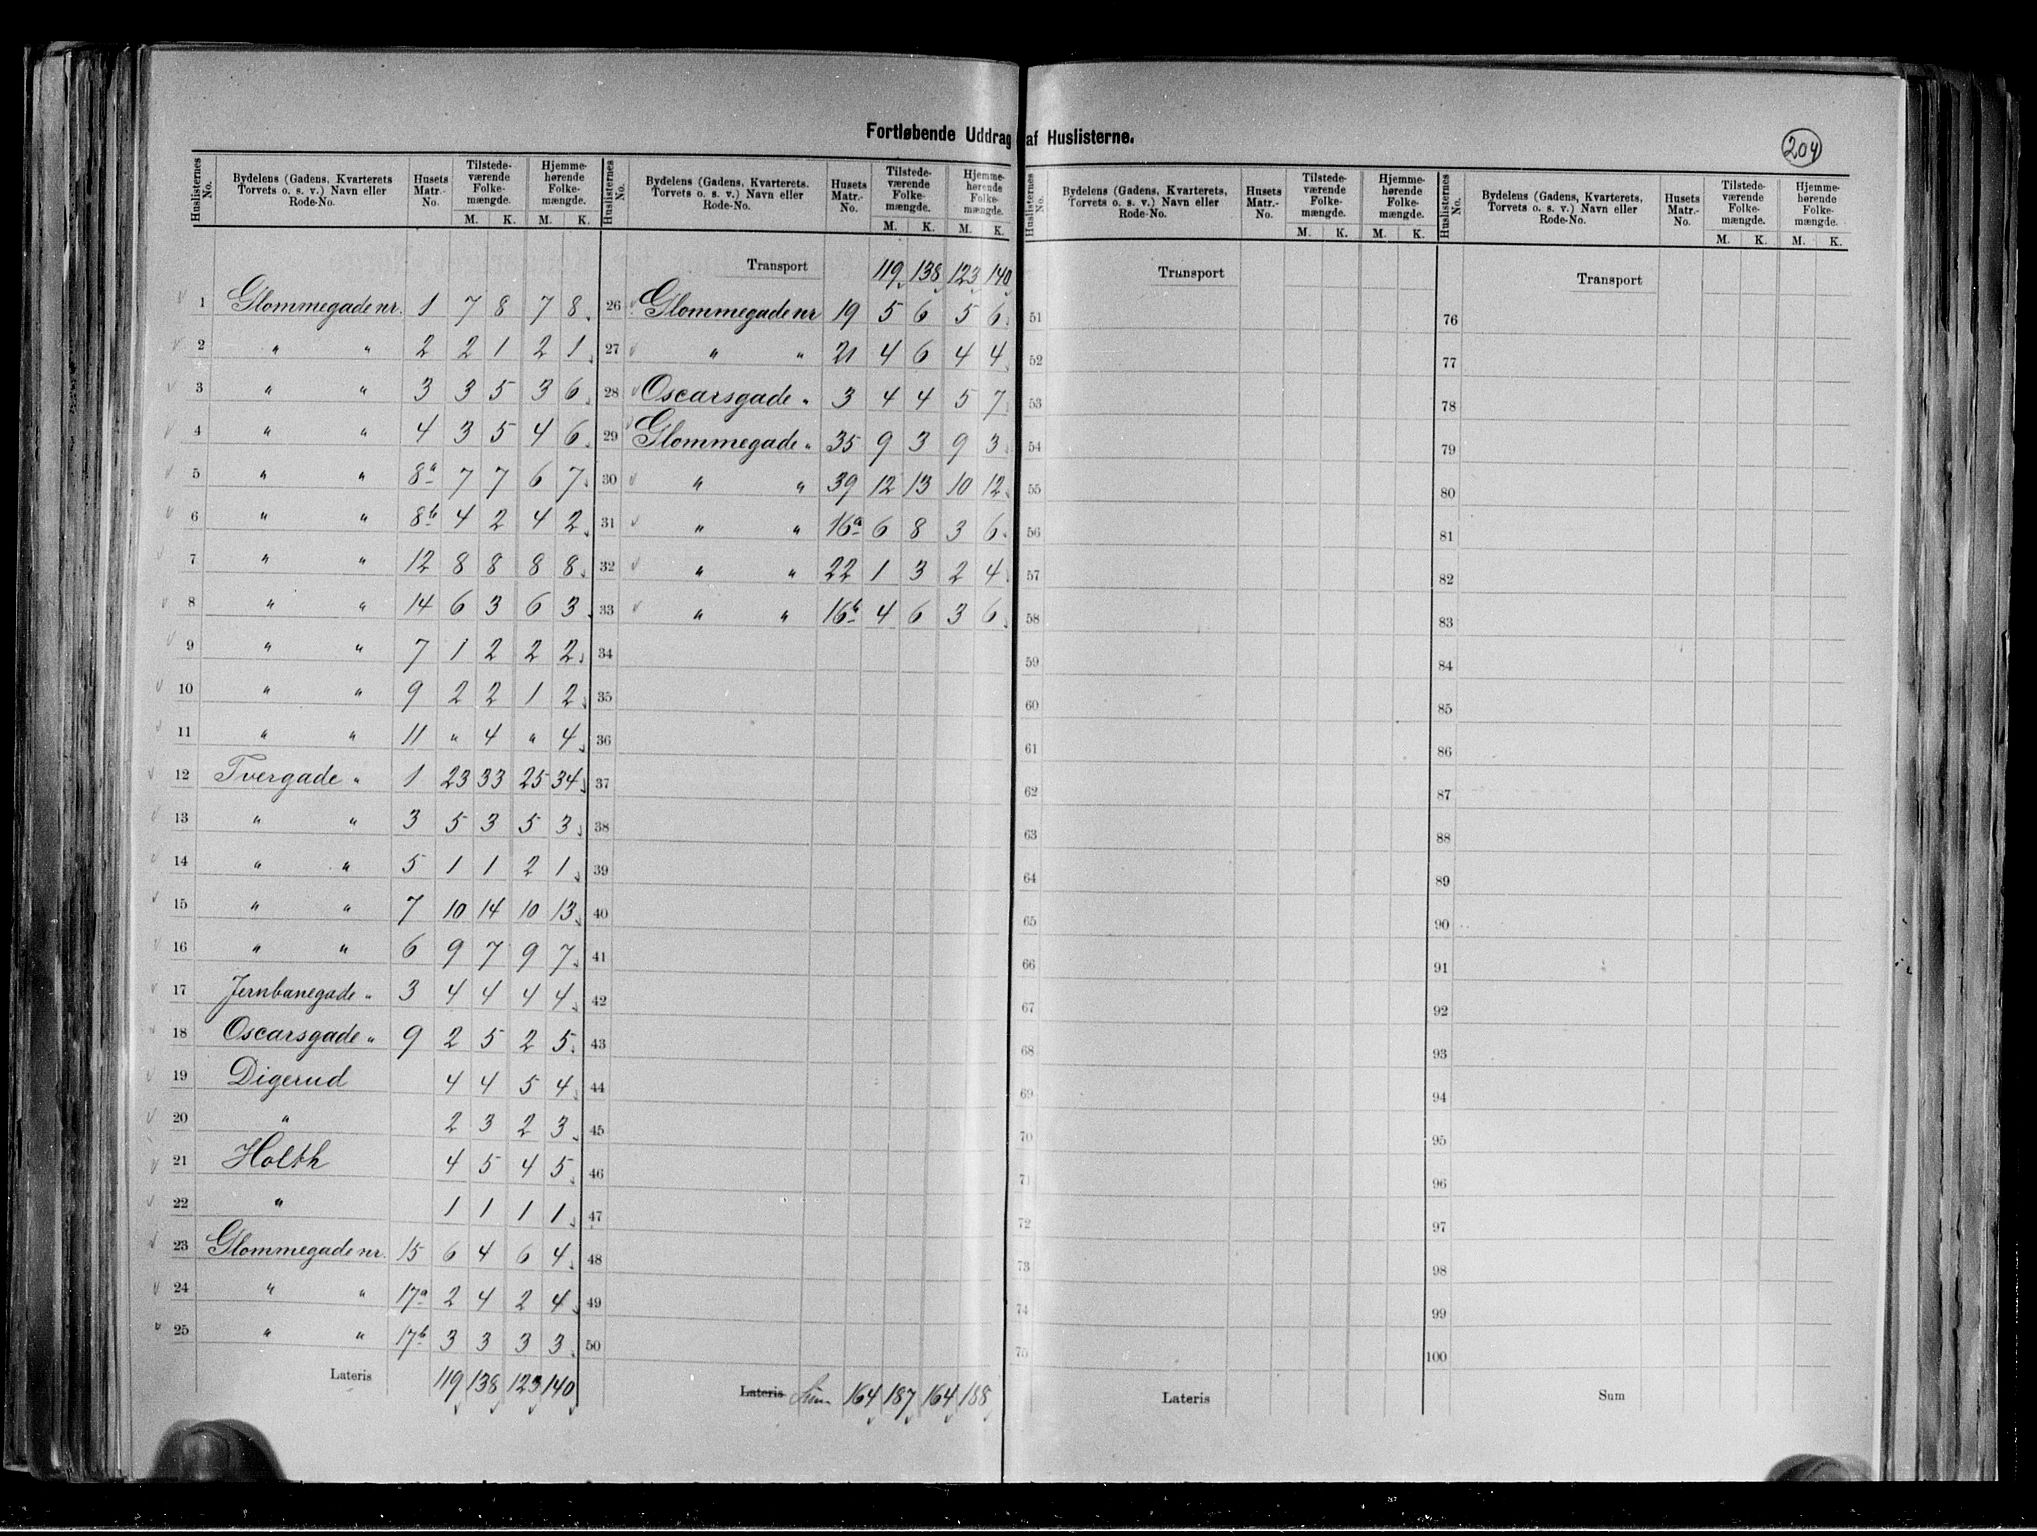 Fortløbende Uddrag af Huslisterne.
204
Huslisternes No. | Bydelens (Gadens, Kvarterets Torvets o. s. v.) Navn eller Rode-No. | Husets Matr.-No. | Tilstedeværende Folkemængde. M. K. | Hjemmehørende Folkemængde. M. K.
1 Glommegade nr. 1 7 8 7 8
2 " " 2 2 1 2 1
3 " " 3 3 5 3 6
4 " " 4 3 5 4 6
5 " " 8a 7 7 6 7
6 " " 8b 4 2 4 2
7 " " 12 8 8 8 8
8 " " 14 6 3 6 3
9 " " 7 1 2 2 2
10 " " 9 2 2 1 2
11 " " 11 " 4 " 4
12 Tvergade " 1 23 33 25 34
13 " " 3 5 3 5 3
14 " " 5 1 1 2 1
15 " " 7 10 14 10 13
16 " " 6 9 7 9 7
17 Jernbanegade " 3 4 4 4 4
18 Oscarsgade " 9 2 5 2 5
19 Digerud 4 4 5 4
20 " 2 3 2 3
21 Holth 4 5 4 5
22 " 1 1 1 1
23 Glommegade nr. 15 6 4 6 4
24 " " 17a 2 4 2 4
25 " " 17b 3 3 3 3
Lateris 119 138 123 140
Huslisternes No. | Bydelens (Gadens, Kvarterets. Torvets o. s. v.) Navn eller Rode-No. | Husets Matr.-No. | Tilstedeværende Folkemængde. M. K. | Hjemmehørende Folkemængde. M. K.
Transport 119 138 123 140
26 Glommegade nr 19 5 6 5 6
27 " " 21 4 6 4 4
28 Oscarsgade " 3 4 4 5 7
29 Glommegade " 35 9 3 9 3
30 " " 39 12 13 10 12
31 " " 16a 6 8 3 6
32 " " 22 1 3 2 4
33 " " 16b 4 6 3 6
34
35
36
37
38
39
40
41
42
43
44
45
46
47
48
49
50
Lateris Sum 164 187 164 188
Huslisternes No. | Bydelens (Gadens, Kvarterets, Torvets o. s. v.) Navn eller Rode-No. | Husets Matr.-No. | Tilstedeværende Folkemængde. M. K. | Hjemmehørende Folkemængde. M. K.
Transport
51
52
53
54
55
56
57
58
59
60
61
62
63
64
65
66
67
68
69
70
71
72
73
74
75
Lateris
Huslisternes No. | Bydelens (Gadens, Kvarterets, Torvets o. s. v.) Navn eller Rode-No. | Husets Matr.-No. | Tilstedeværende Folkemængde. M. K. | Hjemmehørende Folkemængde. M. K.
Transport
76
77
78
79
80
81
82
83
84
85
86
87
88
89
90
91
92
93
94
95
96
97
98
99
100
Sum